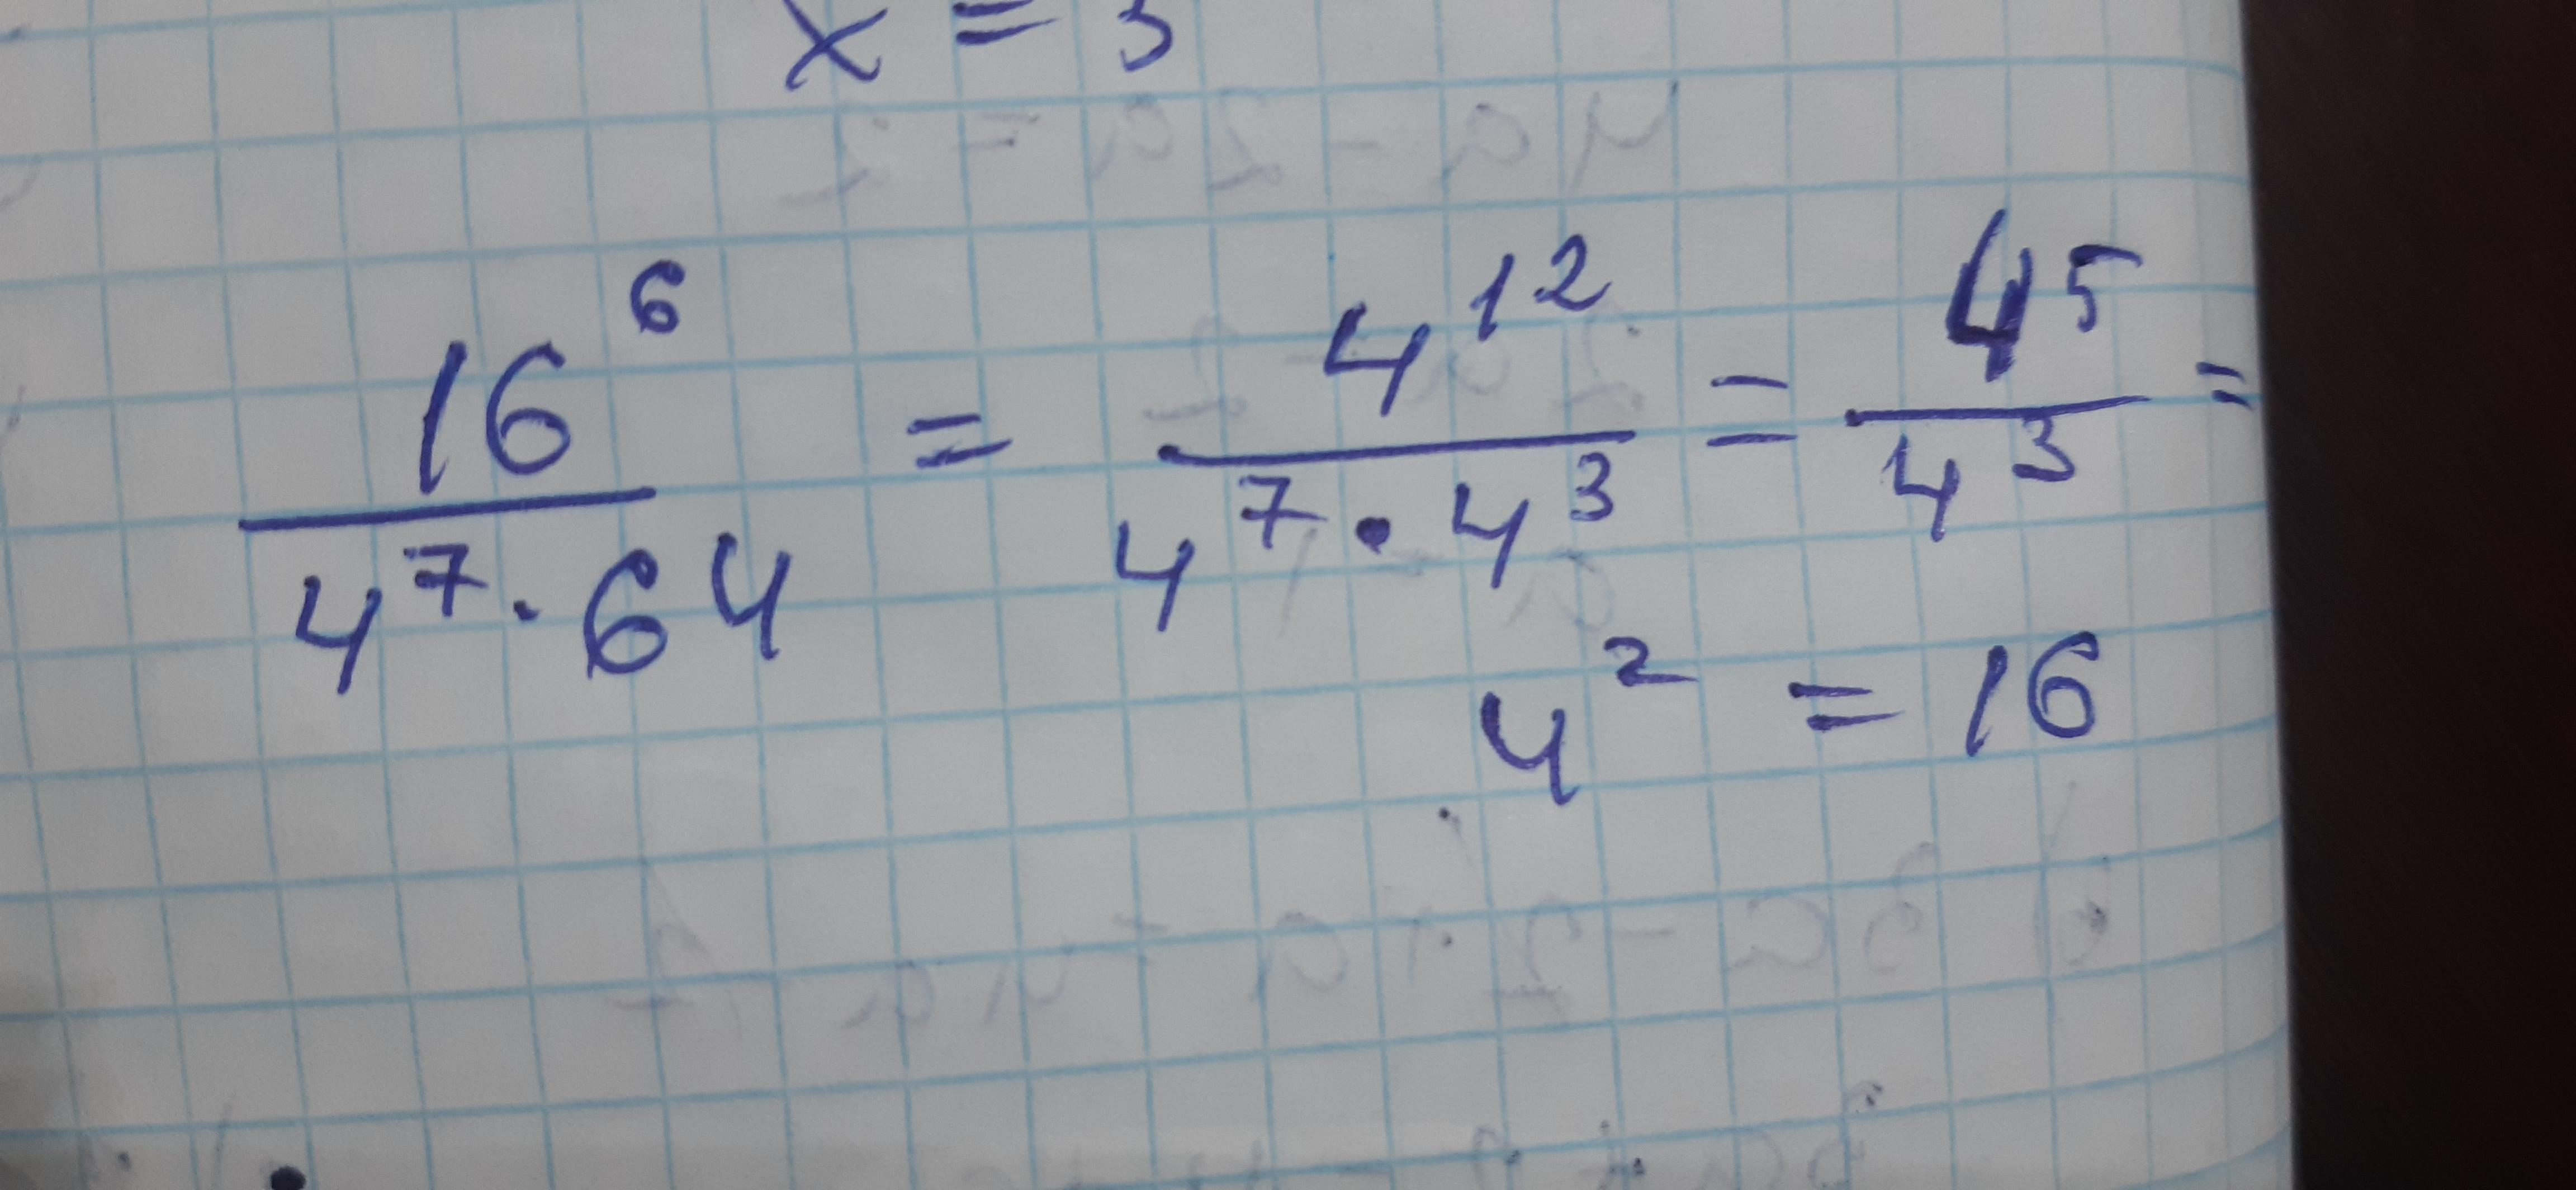 x = 3
16⁶ / 4⁷ · 64 = 4¹² / 4⁷ · 4³ = 4⁵ / 4³ =
4² = 16